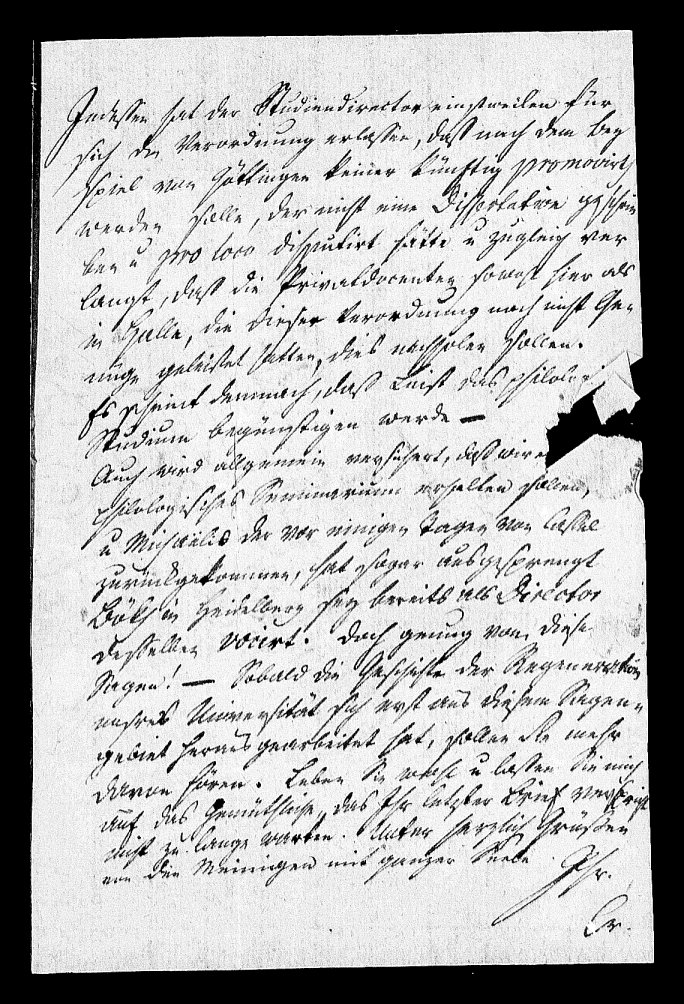 Indessen hat der Studiendirector einstweilen für
sich die Verordnung erlassen, daß nach dem Bey
spiel von Göttingen keiner künftig promovirt
werden solle, der nicht eine Dissertation geschrie
ben u pro loco disputirt hätte u zugleich ver
langt, daß die Privatdocenten sowohl hier als
in Halle, die dieser Verordnung noch nicht Ge-
nüge geleistet hatten, dies nachholen sollen.
Es scheint demnach, daß Leist das philolog
Studium begünstigen werde —
Auch wird allgemein versichert, daß wir e
philologisches Seminarium erhalten sollen,
u Michaelis der vor einigen Tagen von Cassel
zurückgekommen, hat sogar ausgesprengt
Böckh in Heidelberg sey bereits als Director
desselben vocirt. Doch genug von diese
Sagen! — Sobald die Geschichte der Regeneration
unsres Universität sich erst aus diesem Sagen-
gebiet herausgearbeitet hat, sollen Sie mehr
davon hören. Leben Sie wohl u lassen Sie mich
auf das Gemüthliche, das Ihr letzter Brief verspricht
nicht zu lange warten. Unter herzlich Grüßen
von den Meinigen mit ganzer Seele
Ihr.
Cr.